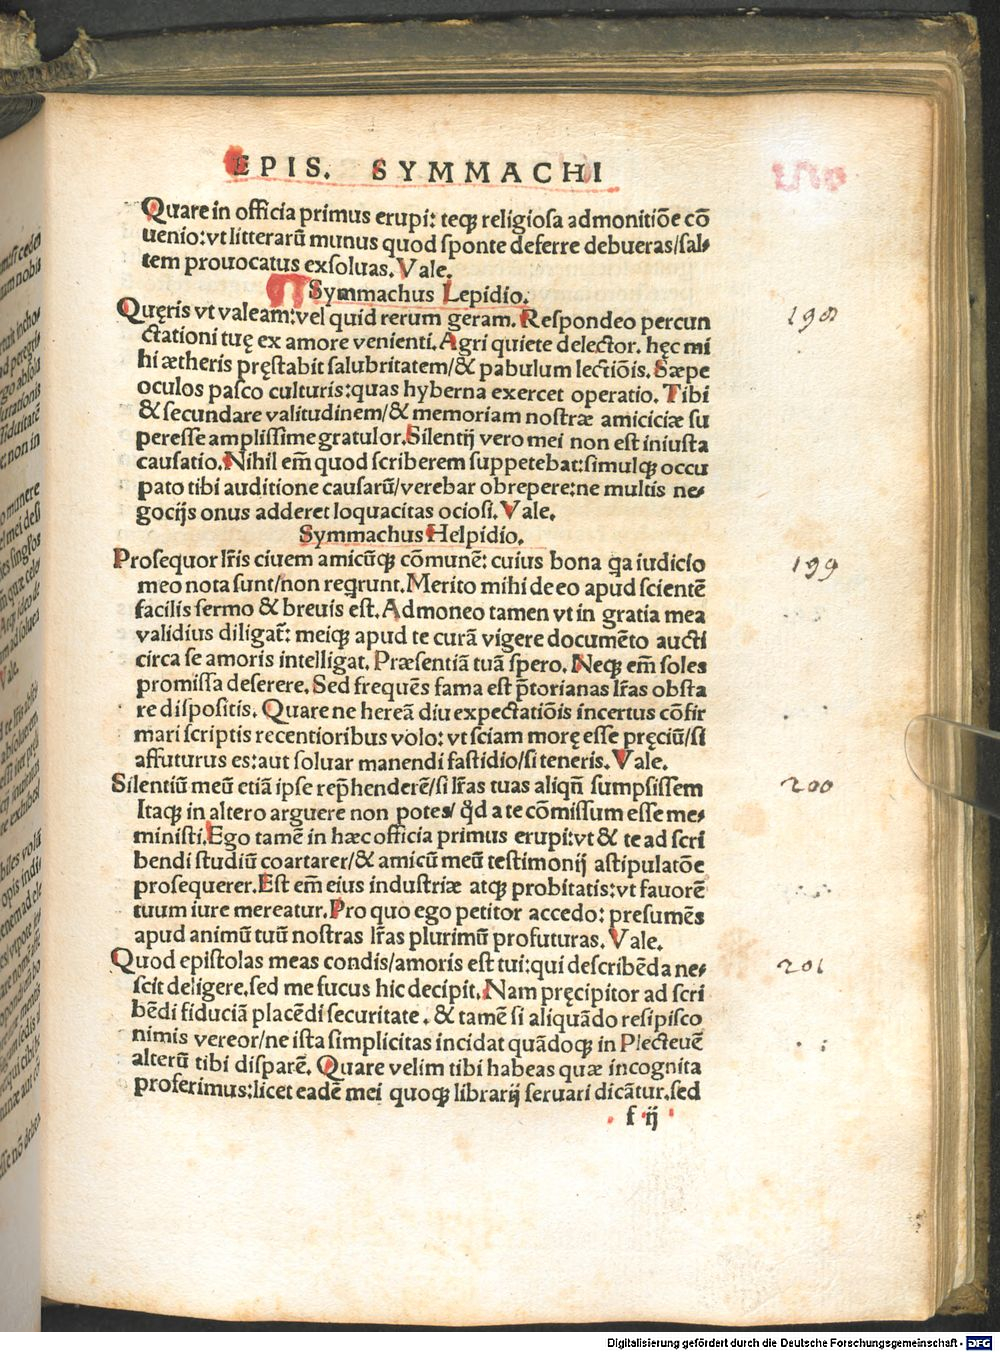 EPIS. SYMMACHI
Quare in officia primus erupi: teqꝫ religiosa admonitiõe cõ
uenio: vt litterarũ munus quod sponte deferre debueras/sal-
tem prouocatus exsoluas. Vale.
Symmachus Lepidio.
198
Quęris vt valeam: vel quid rerum geram. Respondeo percun
ctationi tuę ex amore venienti. Agri quiete delector. hęc mi
hi ætheris pręstabit salubritatem/& pabulum lectiõis. Sæpe
oculos pasco culturis: quas hyberna exercet operatio. Tibi
& secundare valitudinem/& memoriam nostræ amiciciæ su
peresse amplissime gratulor. Silentij vero mei non est iniusta
causatio. Nihil em̃ quod scriberem suppetebat: simulqꝫ occu
pato tibi auditione causarũ/verebar obrepere: ne multis ne-
gocijs onus adderet loquacitas ociosi. Vale.
Symmachus Helpidio.
199
Prosequor lr̃is ciuem amicũqꝫ cõmunẽ: cuius bona qa iudicio
meo nota sunt/non regrunt. Merito mihi de eo apud scientẽ
facilis sermo & breuis est. Admoneo tamen vt in gratia mea
validius diligat̃: meiqꝫ apud te curã vigere documẽto aucti
circa se amoris intelligat. Præsentiã tuã spero. Neqꝫ em̃ soles
promissa deserere. Sed frequẽs fama est p̃torianas lr̃as obsta
re dispositis. Quare ne hereã diu expectatiõis incertus cõfir
mari scriptis recentioribus volo: vt sciam morę esse pręciũ/si
affuturus es: aut soluar manendi fastidio/si teneris. Vale.
200
Silentiũ meũ etiã ipse rep̃henderẽ/si lr̃as tuas aliqñ sumpsissem
Itaqꝫ in altero arguere non potes/ qd̃ a te cõmissum esse me-
ministi. Ego tamẽ in hæc officia primus erupi: vt & te ad scri
bendi studiũ coartarer/& amicũ meũ testimonij astipulatõe
prosequerer. Est em̃ eius industriæ atqꝫ probitatis: vt fauorẽ
tuum iure mereatur. Pro quo ego petitor accedo: presumẽs
apud animũ tuũ nostras lr̃as plurimũ profuturas. Vale.
201
Quod epistolas meas condis/amoris est tui: qui describẽda ne-
scit deligere. sed me fucus hic decipit. Nam pręcipitor ad scri
bẽdi fiduciã placẽdi securitate. & tamẽ si aliquãdo resipisco
nimis vereor/ne ista simplicitas incidat quãdoqꝫ in Plecteuẽ
alterũ tibi disparẽ. Quare velim tibi habeas quæ incognita
proferimus: licet eadẽ mei quoqꝫ librarij seruari dicãtur. sed
f ij
Digitalisierung gefördert durch die Deutsche Forschungsgemeinschaft - DFG